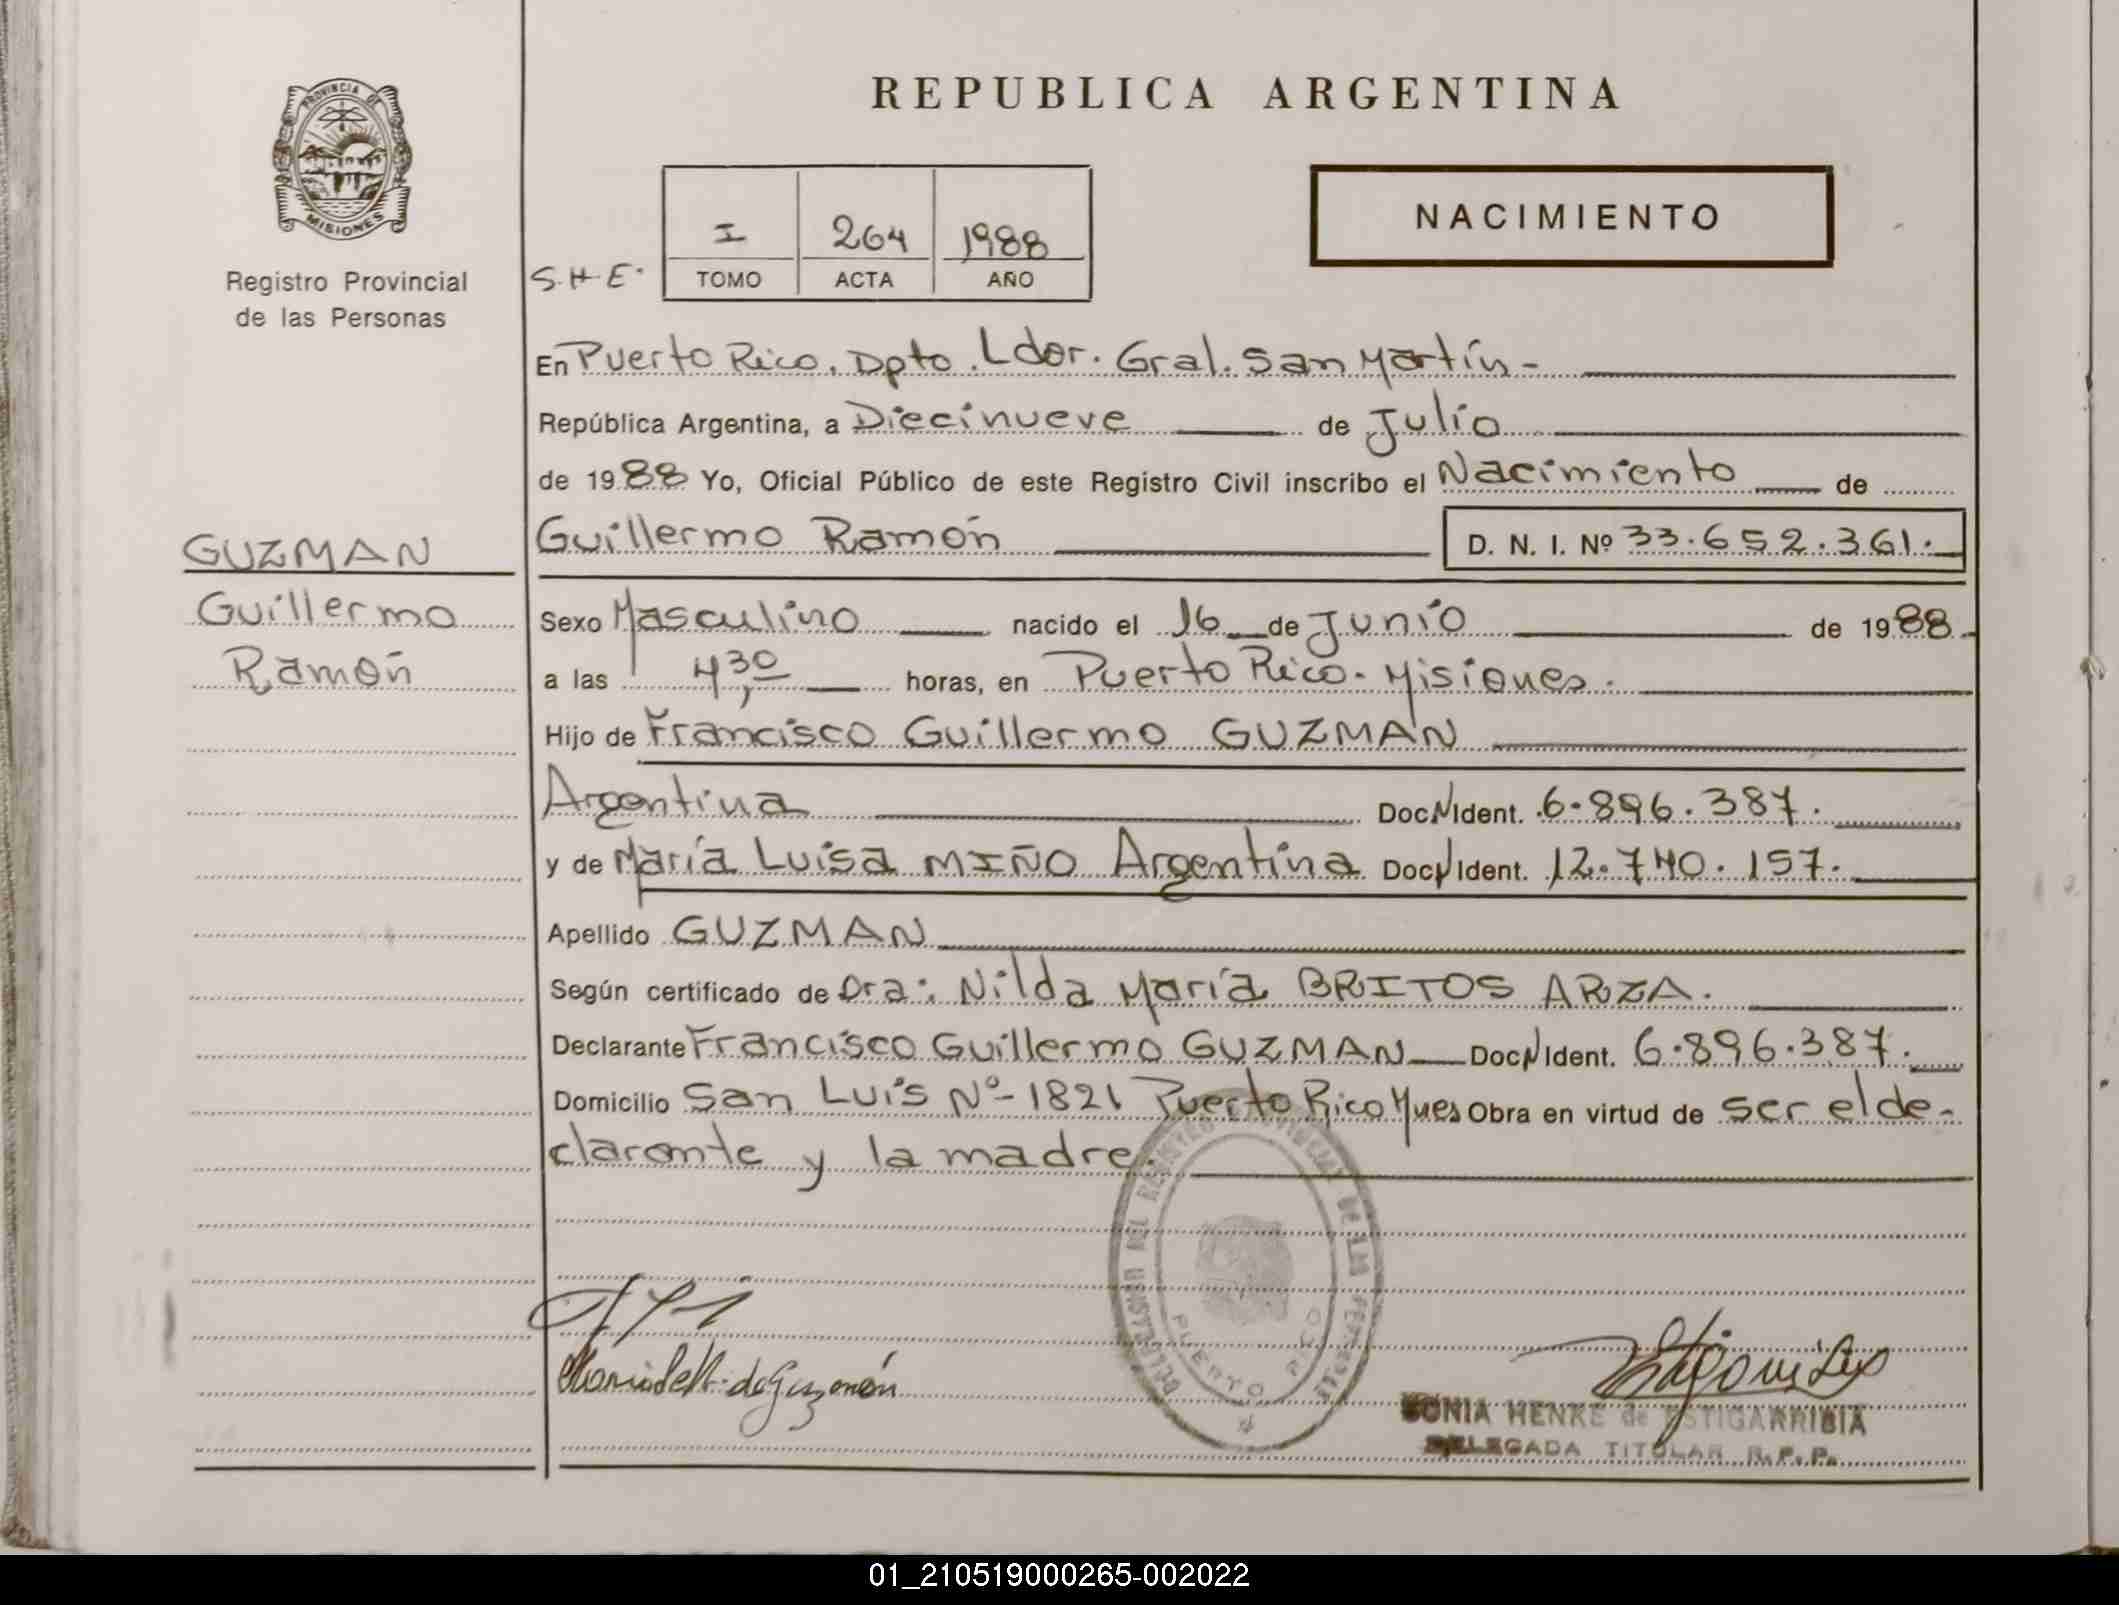 REPUBLICA ARGENTINA
PROVINCIA DE
MISIONES
Registro Provincial
de las Personas
NACIMIENTO
S.H.E.
I 264 1988
TOMO ACTA AÑO
En Puerto Rico. Dpto. Ldor. Gral. San Martín-
República Argentina, a Diecinueve de Julio
de 1988 Yo, Oficial Público de este Registro Civil inscribo el Nacimiento de
Guillermo Ramón D. N. I. Nº 33.652.361.
GUZMAN
Guillermo
Ramón
Sexo Masculino nacido el 16 de Junio de 1988.
a las 4,30 horas, en Puerto Rico. Misiones.
Hijo de Francisco Guillermo GUZMAN
Argentina Doc. N Ident. 6.896.387.
y de María Luisa MIÑO Argentina Doc. N Ident. 12.740.157.
Apellido GUZMAN
Según certificado de Dra: Nilda María BRITOS ARZA.
Declarante Francisco Guillermo GUZMAN Doc. N Ident. 6.896.387.
Domicilio San Luis Nº- 1821 Puerto Rico Mnes Obra en virtud de ser el de-
clarante y la madre.
DE LAS
PUERTO RICO
de Guzmán
SONIA HENKE de ESTIGARRIBIA
DELEGADA TITULAR R.P.P.
01_210519000265-002022